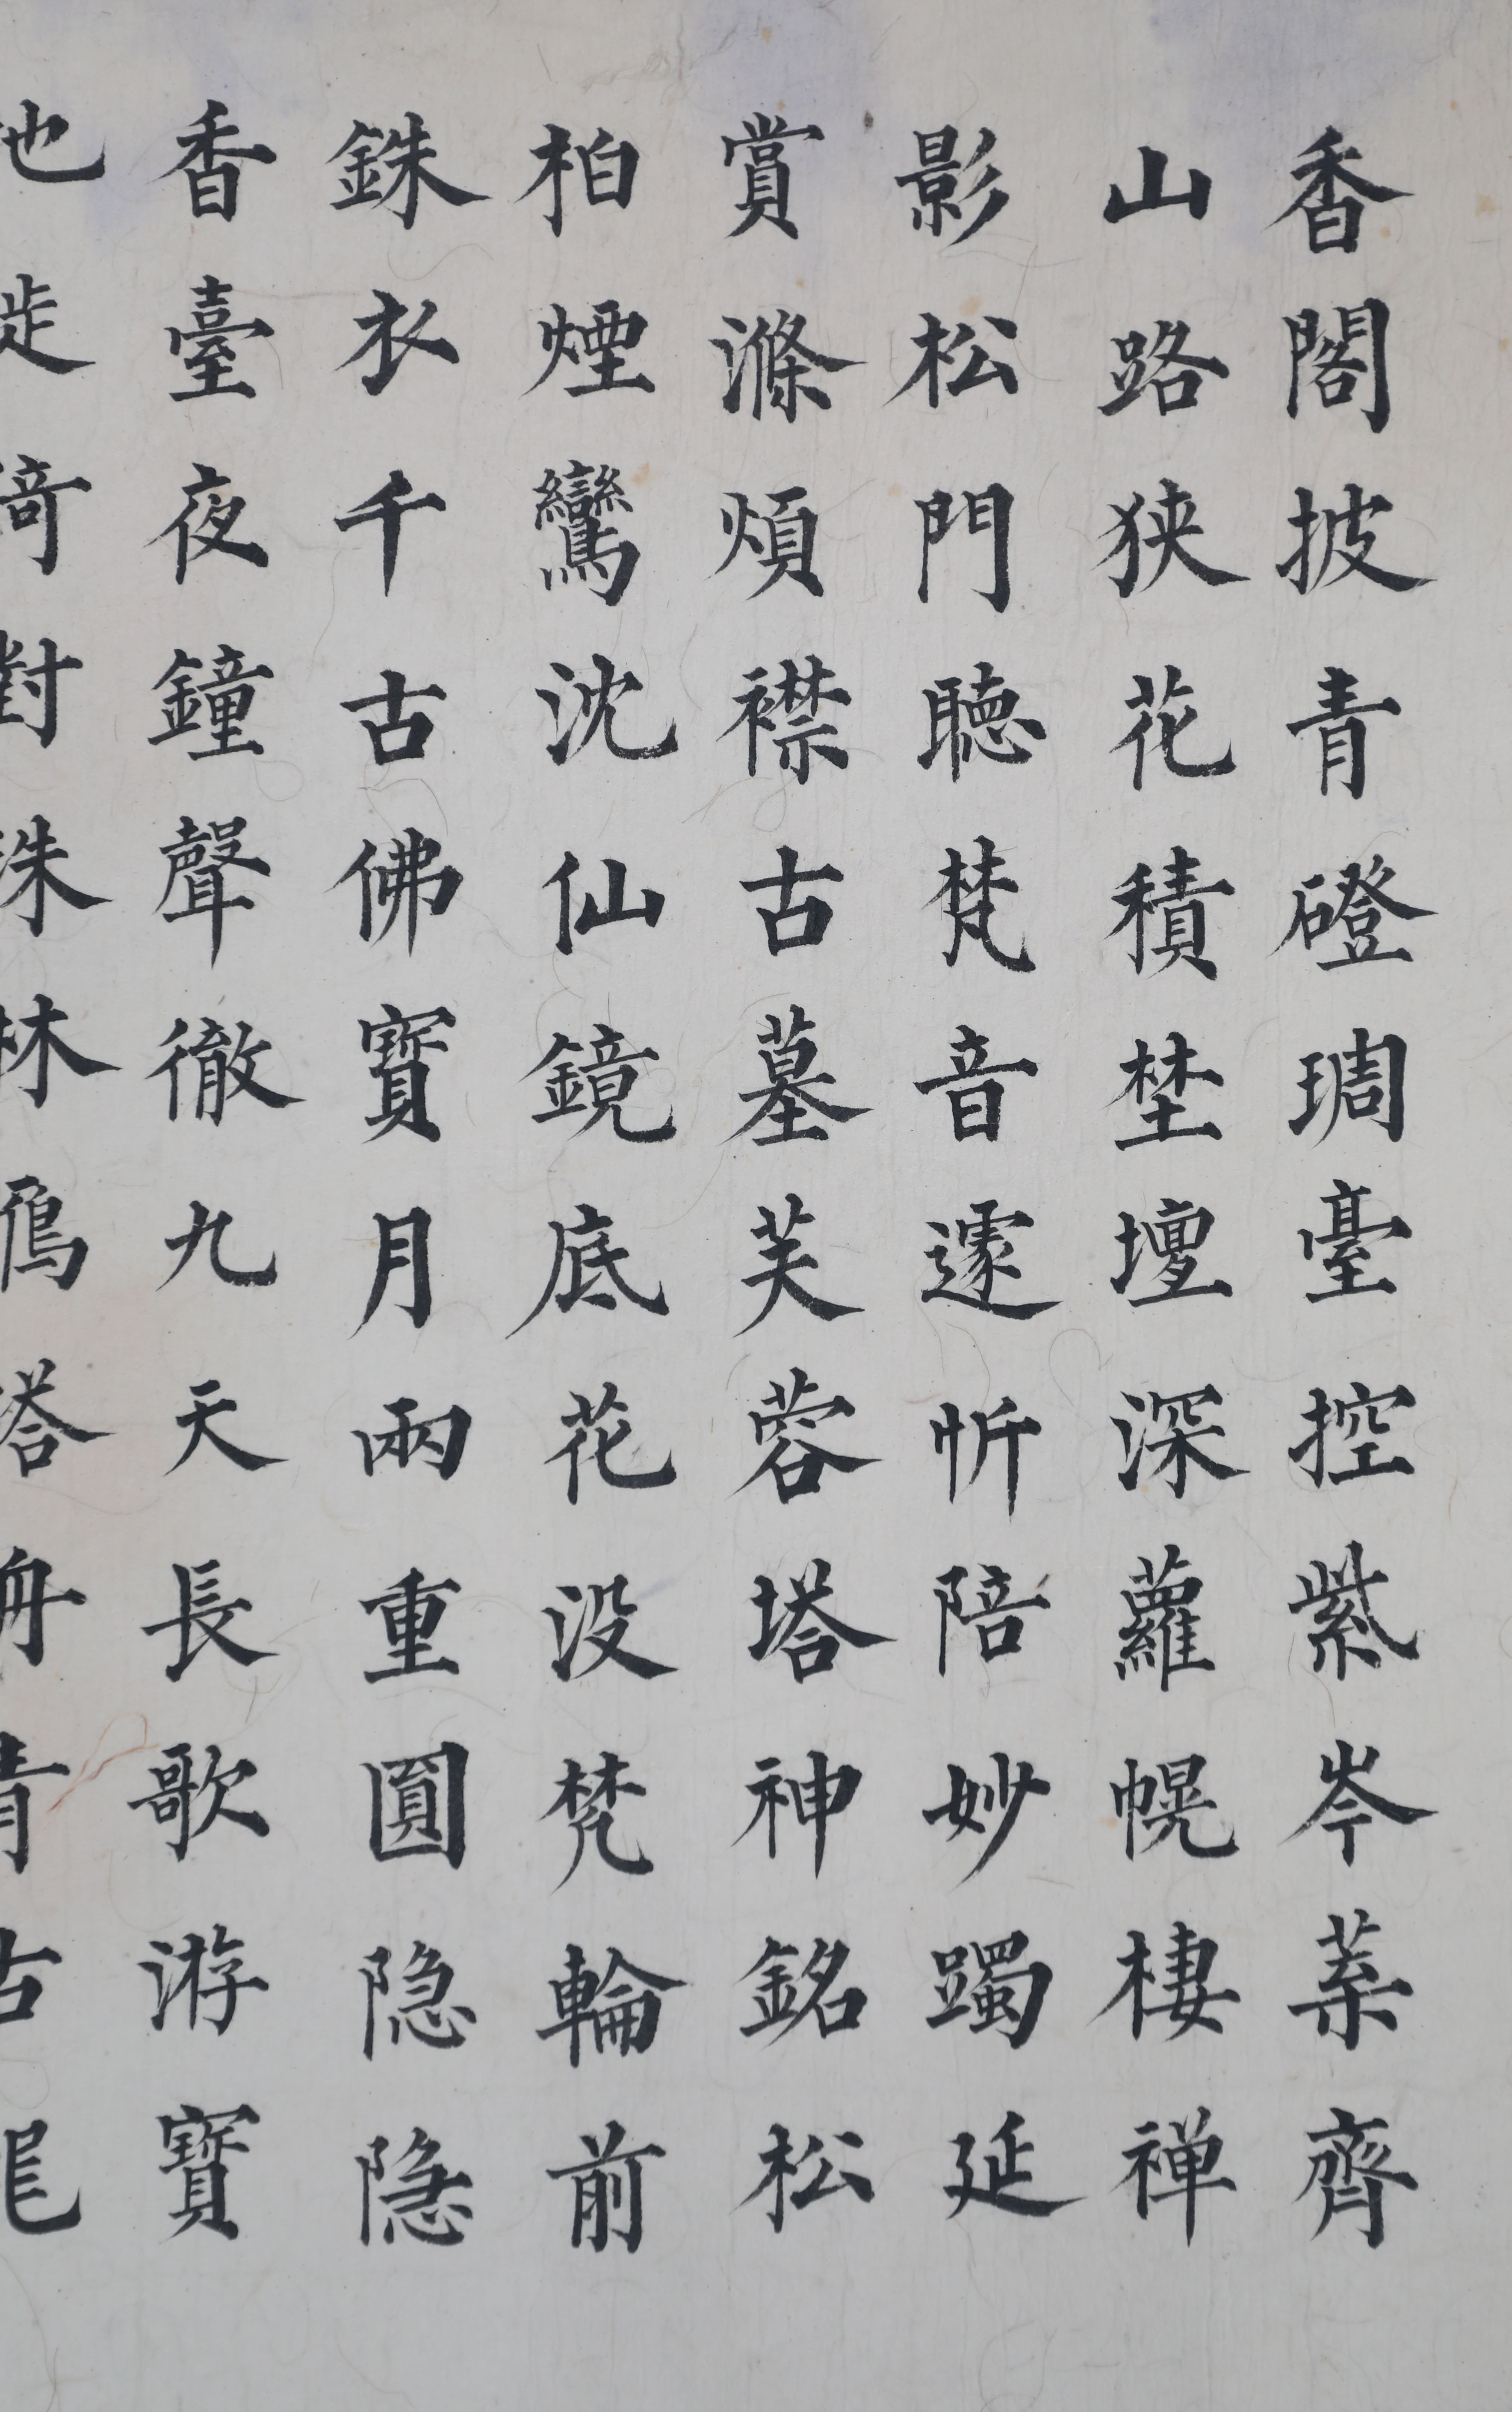 香閣披青磴琱臺控紫岑葉齊
山路狭花積埜壇深蘿幌棲禅
影松門聴梵音遽忻陪妙躅延
賞滌煩襟古墓芙蓉塔神銘松
柏煙鸞沈仙鏡底花没梵輪前
銖衣千古佛寶月兩重圓隐隐
香臺夜鐘聲徹九天長歌游寶
地徙倚對珠林鴈塔丹青古